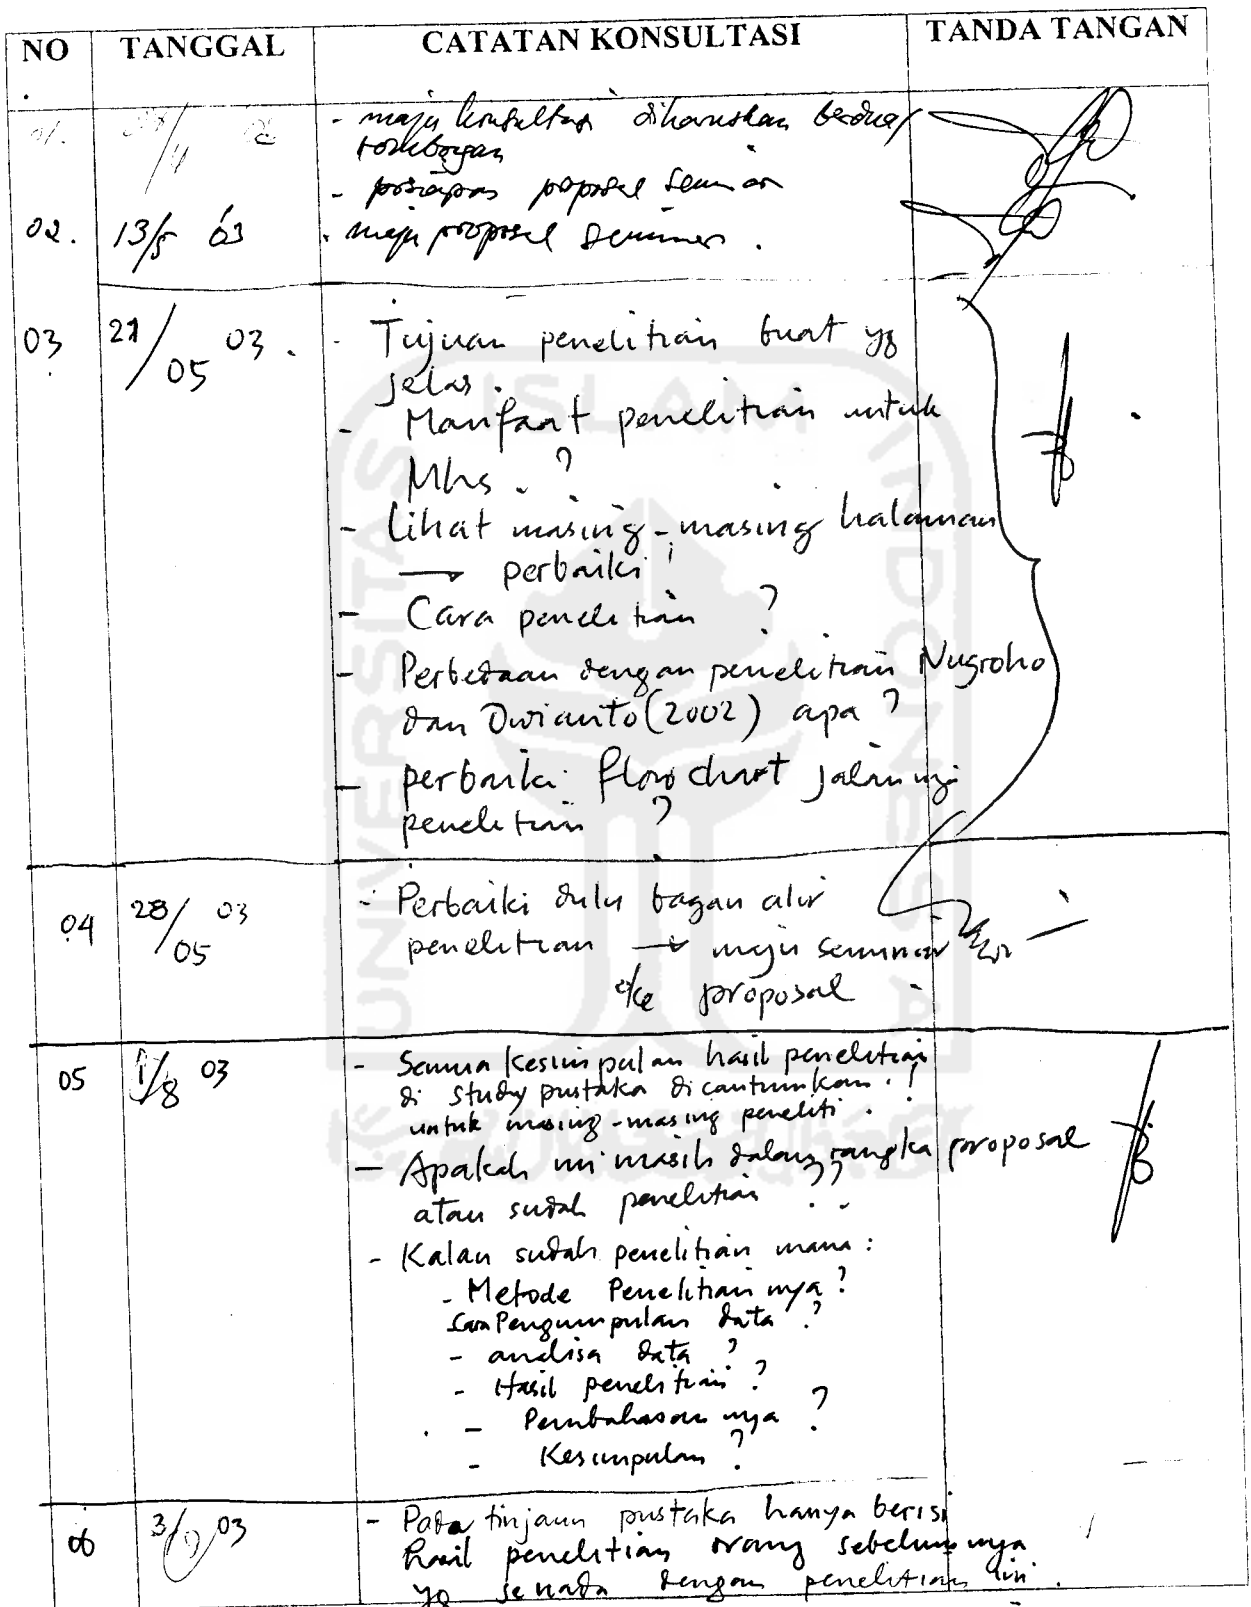 NO TANGGAL CATATAN KONSULTASI TANDA TANGAN
.
01. - maju konsultasi diharuskan berdua/
- persiapan proposal seminar
02. 13/5 03 - maju proposal seminar.
03 21/05 03. - Tujuan penelitian buat yg
jelas.
- Manfaat penelitian untuk
Mhs. ?
- Lihat masing-masing halaman
→ perbaiki !
- Cara penelitian ?
- Perbedaan dengan penelitian Nugroho
dan Dwianto (2002) apa ?
- perbaiki flow chart jalannya
penelitian ?
04 28/05 03 - Perbaiki dulu bagan alir
penelitian → maju seminar
proposal
05 1/8 03 - Semua kesimpulan hasil penelitian
di study pustaka dicantumkan !
untuk masing-masing peneliti.
- Apakah ini masih dalam rangka proposal
atau sudah penelitian ??
- Kalau sudah penelitian mana :
- Metode Penelitiannya ?
Cara Pengumpulan data ?
- analisa data ?
- Hasil penelitian ?
- Pembahasannya ?
- Kesimpulan ?
06 3/9 03 - Pada tinjaun pustaka hanya berisi
hasil penelitian orang sebelumnya
yg senada dengan penelitian ini.
UNIVERSITAS
ISLAM
INDONESIA